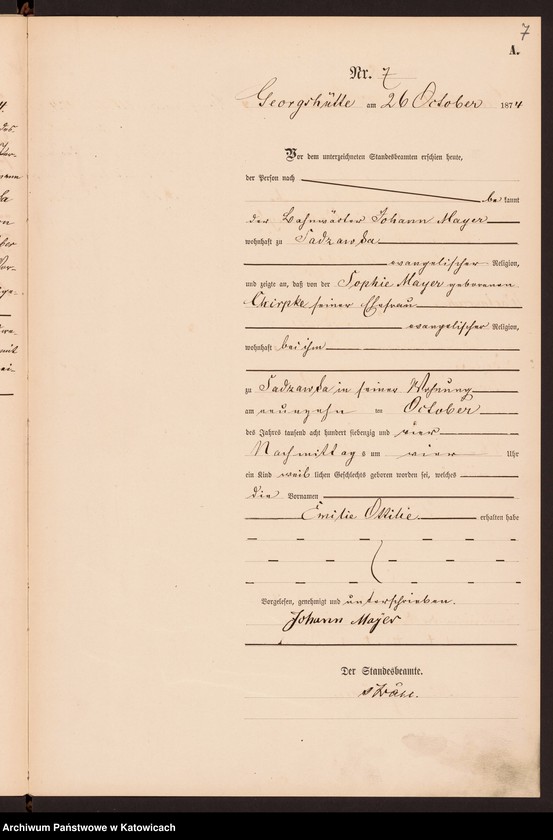 7
A.
Nr. 7
Georgshütte am 26 October 1874
Vor dem unterzeichneten Standesbeamten erschien heute,
der Person nach
be kannt
der Bahnwärter Johann Mayer
wohnhaft zu Sadzawka
evangelischer Religion,
und zeigte an, daß von der Sophie Mayer geborenen
Chirpke seiner Ehefrau
evangelischer Religion,
wohnhaft bei ihm
zu Sadzawka in seiner Wohnung
am neunzehn ten October
des Jahres tausend acht hundert siebenzig und vier
Nachmittags um vier Uhr
ein Kind weib lichen Geschlechts geboren worden sei, welches
die Vornamen
Emilie Ottilie erhalten habe
Vorgelesen, genehmigt und unterschrieben.
Johann Mayer
Der Standesbeamte.
Archiwum Państwowe w Katowicach